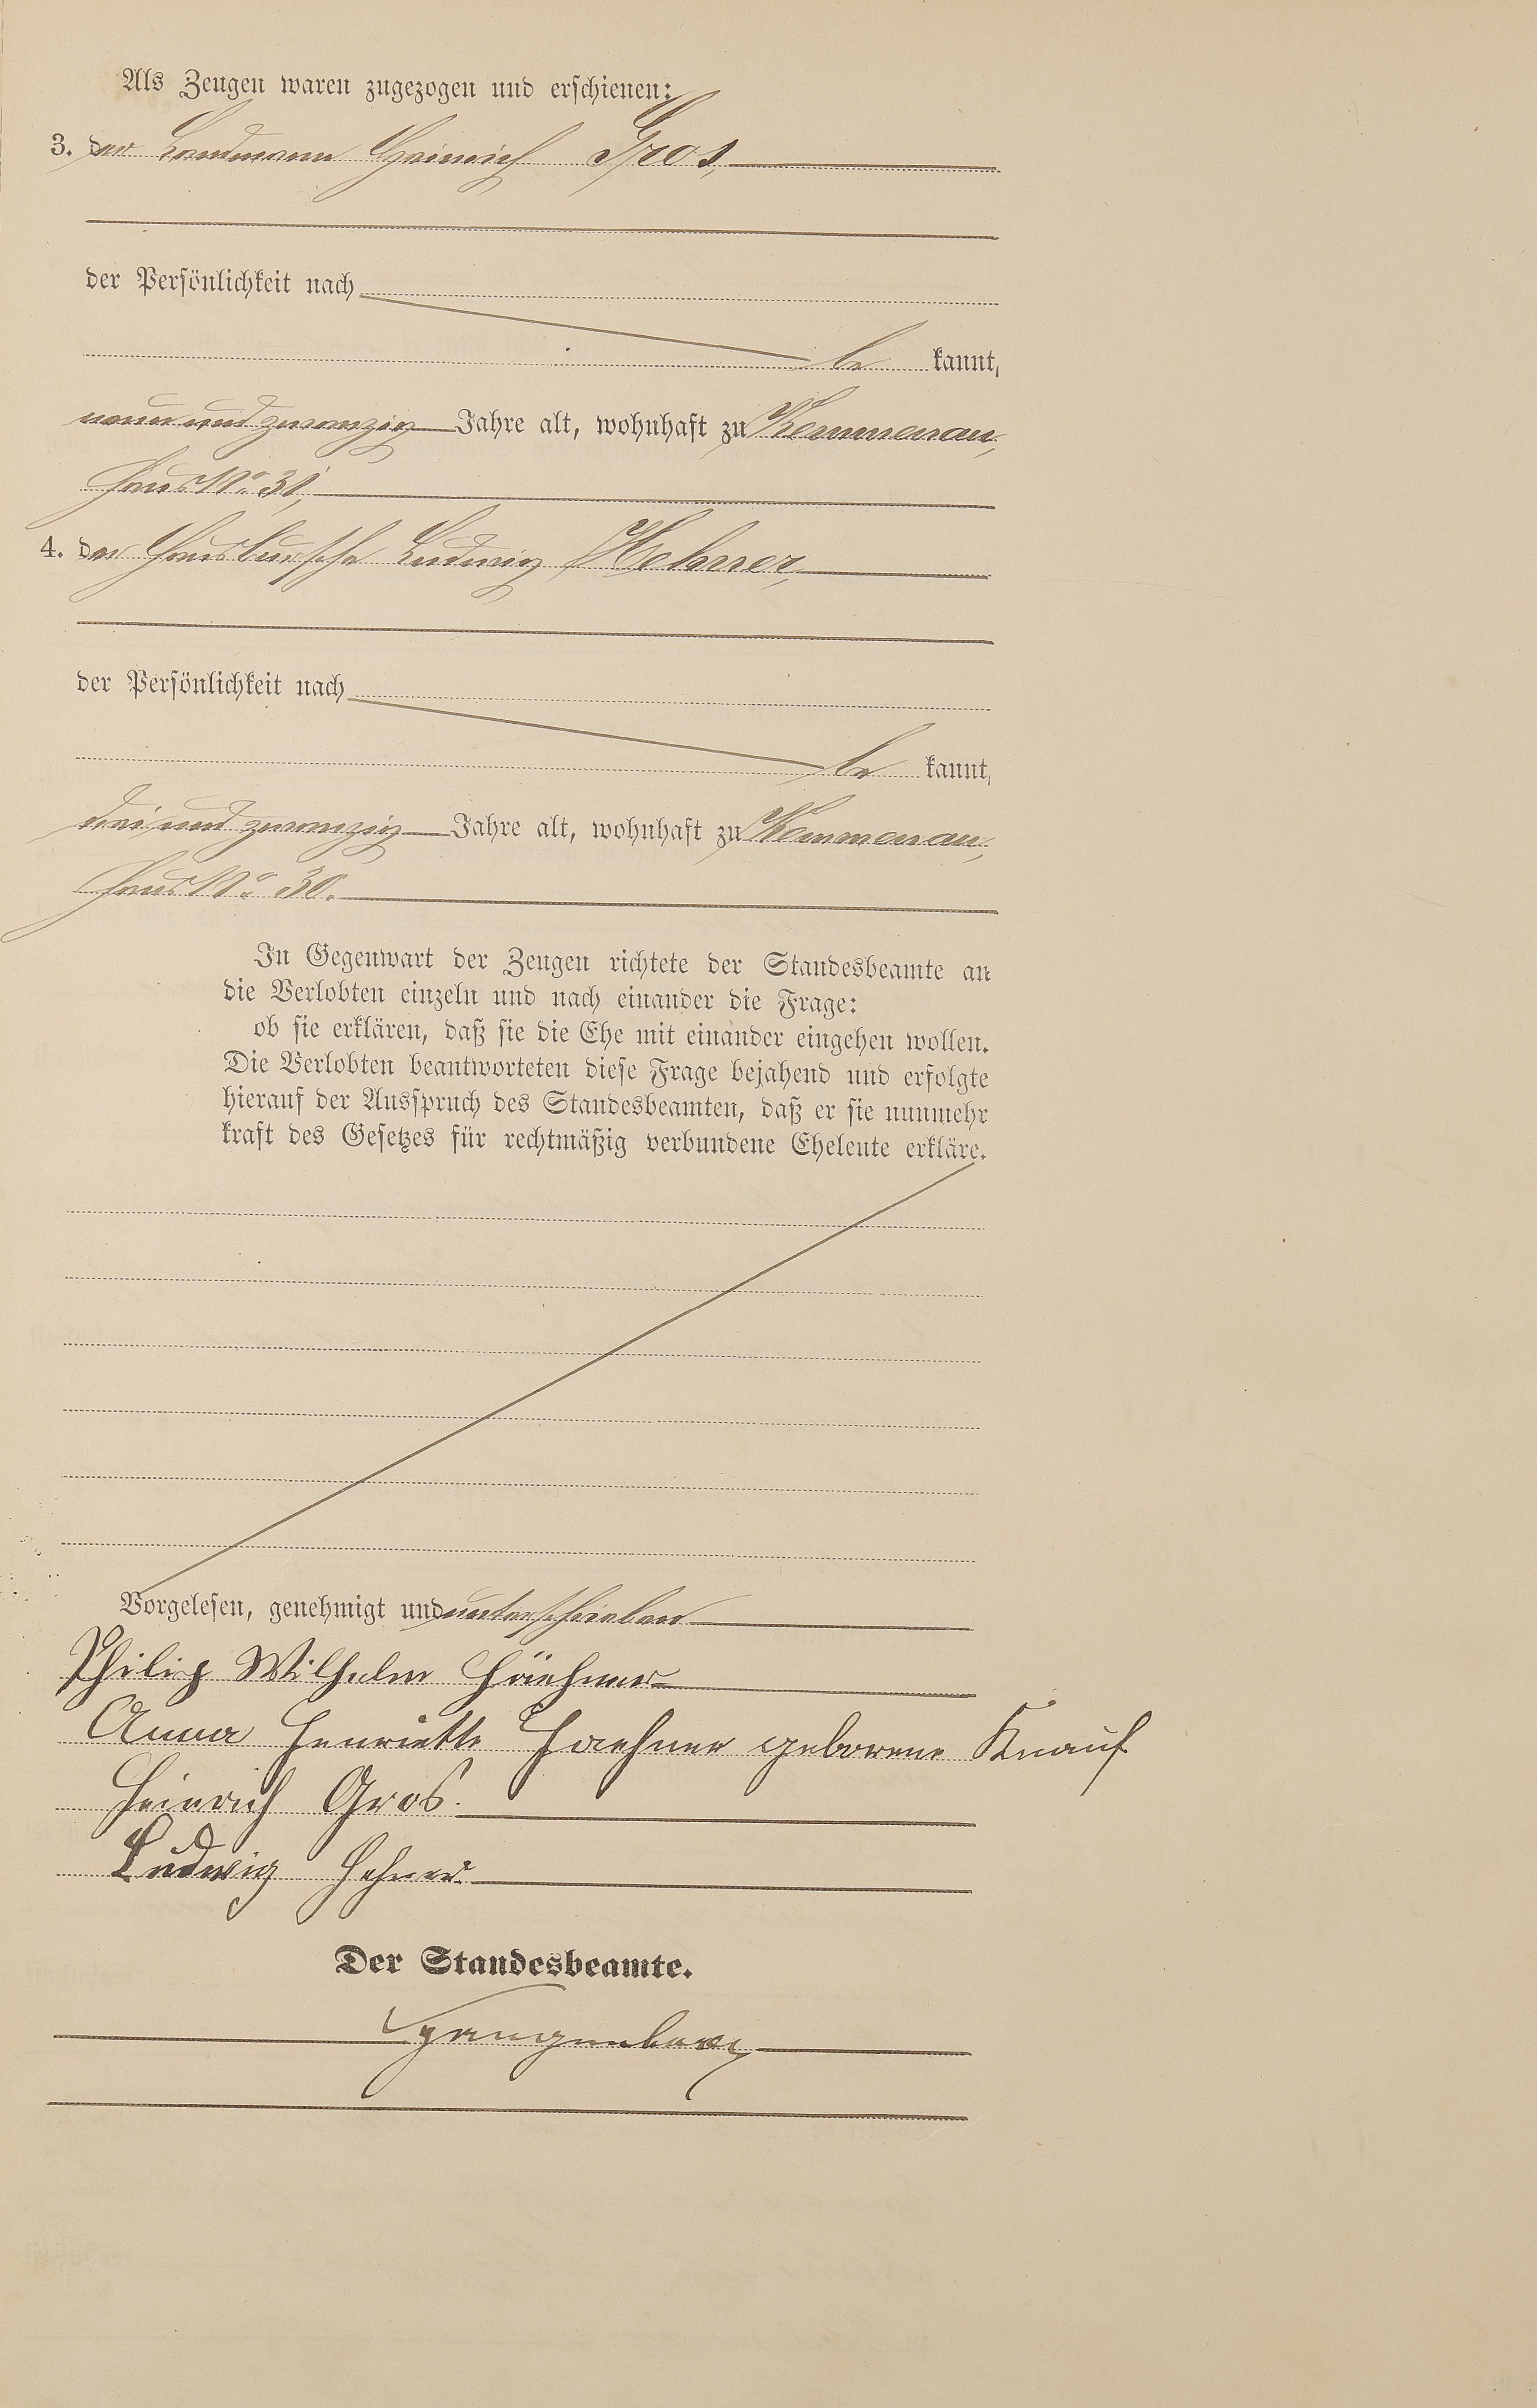 Als Zeugen waren zugezogen und erschienen:
3. der Landmann Heinrich Gros,
der Persönlichkeit nach
be kannt,
neun und zwanzig Jahre alt, wohnhaft zu Kemmenau,
Haus No 31,
4. der Hausbursche Ludwig Hehner,
der Persönlichkeit nach
be kannt,
drei und zwanzig Jahre alt, wohnhaft zu Kemmenau,
Haus No 30.
In Gegenwart der Zeugen richtete der Standesbeamte an
die Verlobten einzeln und nach einander die Frage:
ob sie erklären, daß sie die Ehe mit einander eingehen wollen.
Die Verlobten beantworteten diese Frage bejahend und erfolgte
hierauf der Ausspruch des Standesbeamten, daß er sie nunmehr
kraft des Gesetzes für rechtmäßig verbundene Eheleute erkläre.
Vorgelesen, genehmigt und unterschrieben
Philip Wilhelm Häehner
Anna Henriette Haehner geborene Knauf
Heinrich Gros.
Ludwig Hehner
Der Standesbeamte.